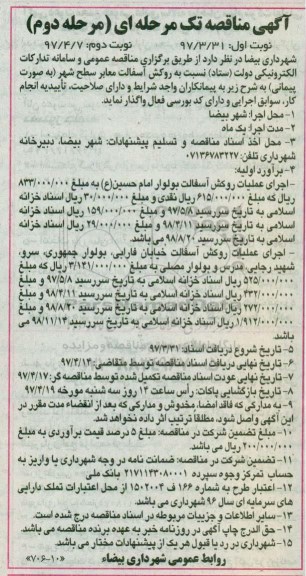 آگهی مناقصه تک مرحله ای (مرحله دوم)
نوبت اول: ۹۷/۳/۳۱ نوبت دوم: ۹۷/۴/۷
شهرداری بیضا در نظر دارد از طریق برگزاری مناقصه عمومی و سامانه تدارکات
الکترونیکی دولت (ستاد) نسبت به روکش آسفالت معابر سطح شهر (به صورت
پیمانی) به شرح زیر به پیمانکاران واجد شرایط و دارای صلاحیت، تأییدیه انجام
کار، سوابق اجرایی و دارای کد بورسی فعال واگذار نماید.
۱- محل اجرا: شهر بیضا
۲- مدت اجرا: یک ماه
۳- محل اخذ اسناد مناقصه و تسلیم پیشنهادات: شهر بیضا، دبیرخانه
شهرداری تلفن: ۰۷۱۳۶۷۸۳۲۲۷
۴- برآورد اولیه:
- اجرای عملیات روکش آسفالت بولوار امام حسین(ع) به مبلغ ۸۳۳/۰۰۰/۰۰۰
ریال که مبلغ ۶۱۵/۰۰۰/۰۰۰ ریال نقدی و مبلغ ۳۰/۰۰۰/۰۰۰ ریال اسناد خزانه
اسلامی به تاریخ سررسید ۹۷/۵/۸ و مبلغ ۱۵۹/۰۰۰/۰۰۰ ریال اسناد خزانه
اسلامی به تاریخ سررسید ۹۸/۴/۱۱ و مبلغ ۲۹/۰۰۰/۰۰۰ ریال اسناد خزانه
اسلامی به تاریخ سررسید ۹۸/۸/۲۰ می باشد.
- اجرای عملیات روکش آسفالت خیابان فارابی، بولوار جمهوری، سرو،
شهید رجایی، مدرس و بولوار مصلی به مبلغ ۳/۱۴۱/۰۰۰/۰۰۰ ریال که مبلغ
۵۲۵/۰۰۰/۰۰۰ ریال اسناد خزانه اسلامی به تاریخ سررسید ۹۷/۵/۸ و مبلغ
۴۳۲/۰۰۰/۰۰۰ ریال اسناد خزانه اسلامی به تاریخ سررسید ۹۸/۴/۱۱ و مبلغ
۲۷۲/۰۰۰/۰۰۰ ریال اسناد خزانه اسلامی به تاریخ سررسید ۹۸/۸/۲۰ و مبلغ
۱/۹۱۲/۰۰۰/۰۰۰ ریال اسناد خزانه اسلامی به تاریخ سررسید ۹۸/۱۱/۱۴ می
باشد.
۵- تاریخ شروع دریافت اسناد: ۹۷/۳/۳۱
۶- تاریخ نهایی دریافت اسناد مناقصه توسط متقاضی: ۹۷/۴/۱۴
۷- تاریخ نهایی عودت اسناد مناقصه تکمیل شده توسط مناقصه گر: ۹۷/۴/۱۷
۸- تاریخ بازگشایی پاکات: راس ساعت ۱۴ روز سه شنبه مورخه ۹۷/۴/۱۹
۹- به مدارکی که فاقد امضا، مخدوش و مدارکی که بعد از انقضاء مدت مقرر در
این آگهی واصل شود، مطلقا ترتیب اثر داده نخواهد شد.
۱۰- مبلغ تضمین شرکت در مناقصه: مبلغ ۵ درصد قیمت برآوردی به مبلغ
۲۰۰/۰۰۰/۰۰۰ ریال می باشد.
۱۱- تضمین شرکت در مناقصه: ضمانت نامه در وجه شهرداری یا واریز به
حساب تمرکز وجوه سپرده ۲۱۷۱۱۴۳۰۸۰۰۰۱ بانک ملی
۱۲- اعتبار طرح به شماره ۱۶۶ ف ۱۵۰۲۰۰۴ از محل اعتبارات تملک دارایی
های سرمایه ای سال ۹۶ شهرداری می باشد.
۱۳- سایر اطلاعات و جزییات مربوطه در اسناد مناقصه درج شده است.
۱۴- حق الدرج چاپ آگهی در روزنامه خبر به عهده برنده مناقصه می باشد.
۱۵- شهرداری در رد یا قبول هر یک از پیشنهادات مختار می باشد.
روابط عمومی شهرداری بیضاء «۷۰۶-۱۰»